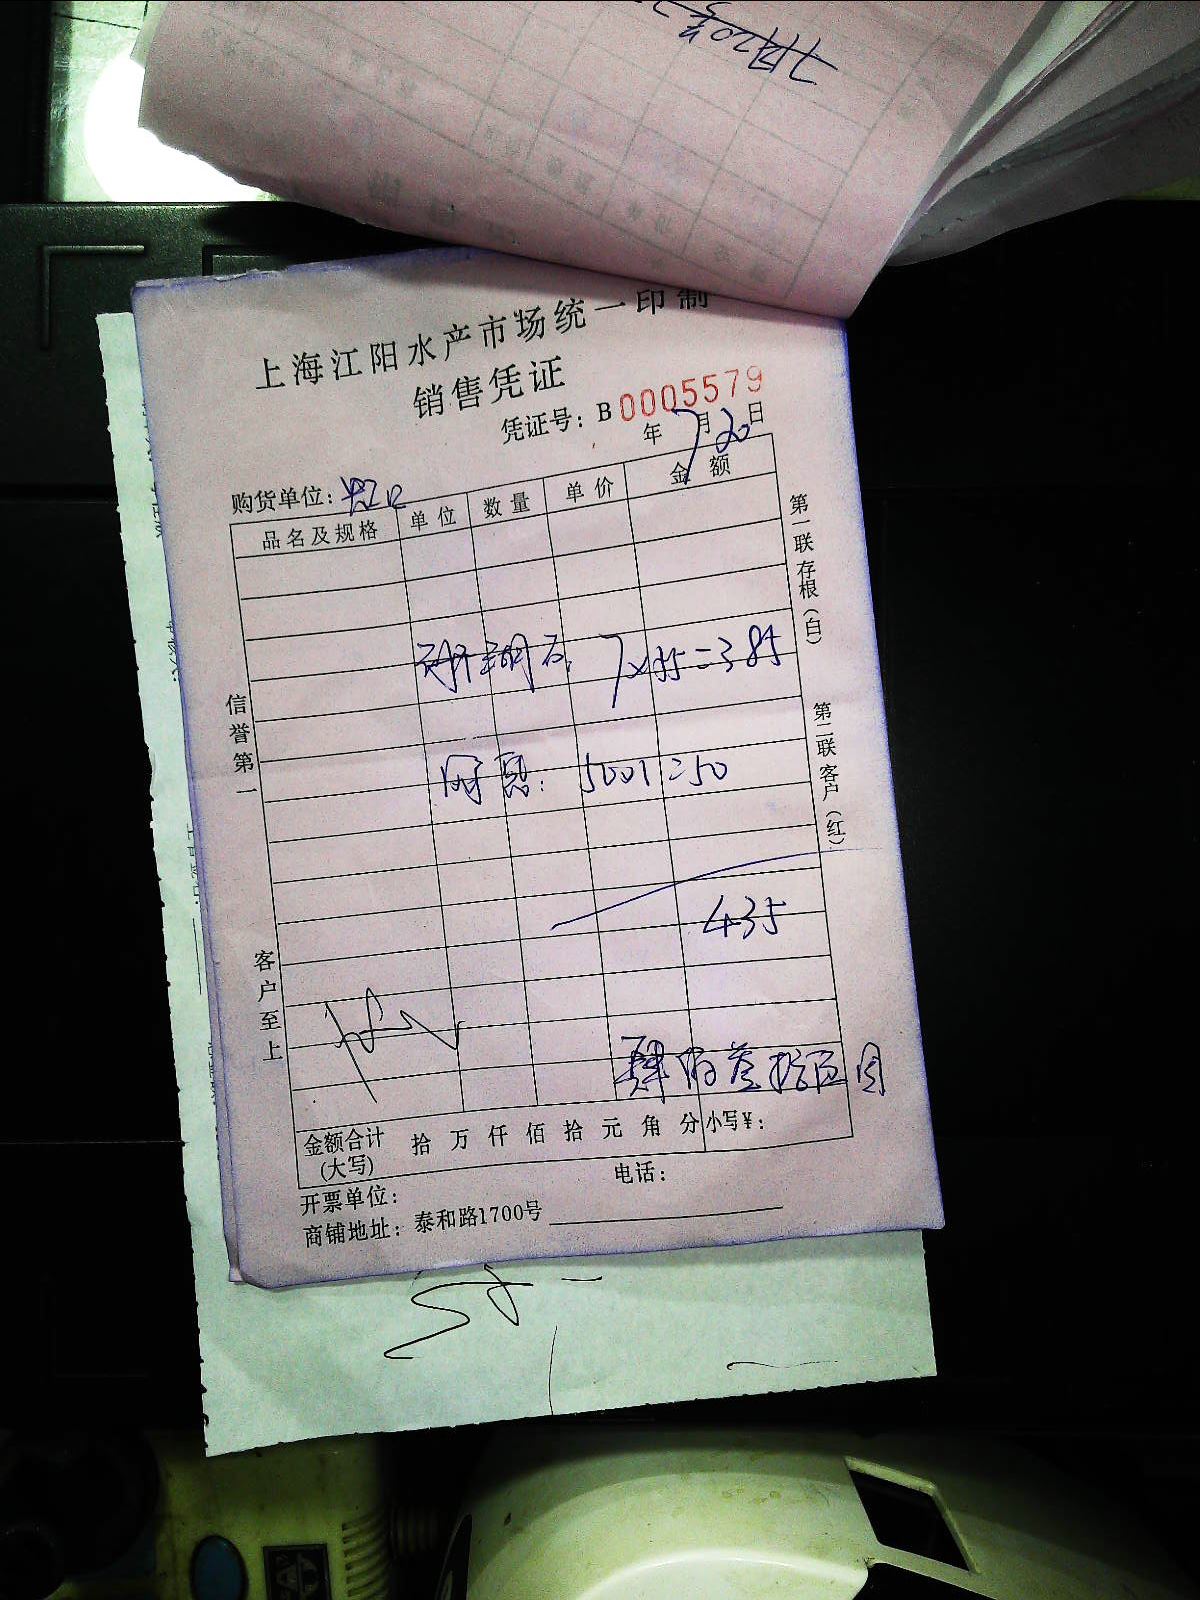 7月20号
上海江阳水产市场统一印制
销售凭证
凭证号：B 0005579
年 7月20日
购货单位：虹口
品名及规格 单位 数量 单价 金额
7×55=385
50×1=50
435
肆佰叁拾伍圆
金额合计（大写） 拾 万 仟 佰 拾 元 角 分 小写¥：
开票单位： 电话：
商铺地址：泰和路1700号
信誉第一
客户至上
第一联存根（白）
第二联客户（红）